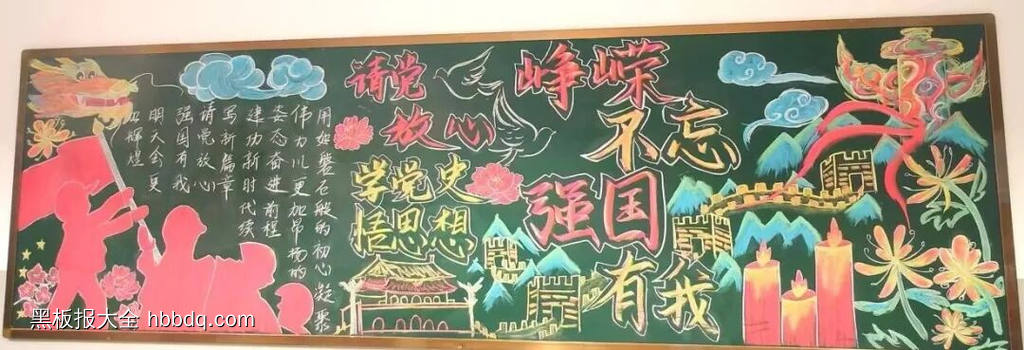 请党
放心
学党史
悟思想
峥嵘
不忘
强国
有我
用如磐石般的初心凝聚
伟力以更加昂扬的
姿态奋进前程
建功新时代续
写新篇章
请党放心
强国有我
明天会更
加辉煌
黑板报大全 hbbdq.com